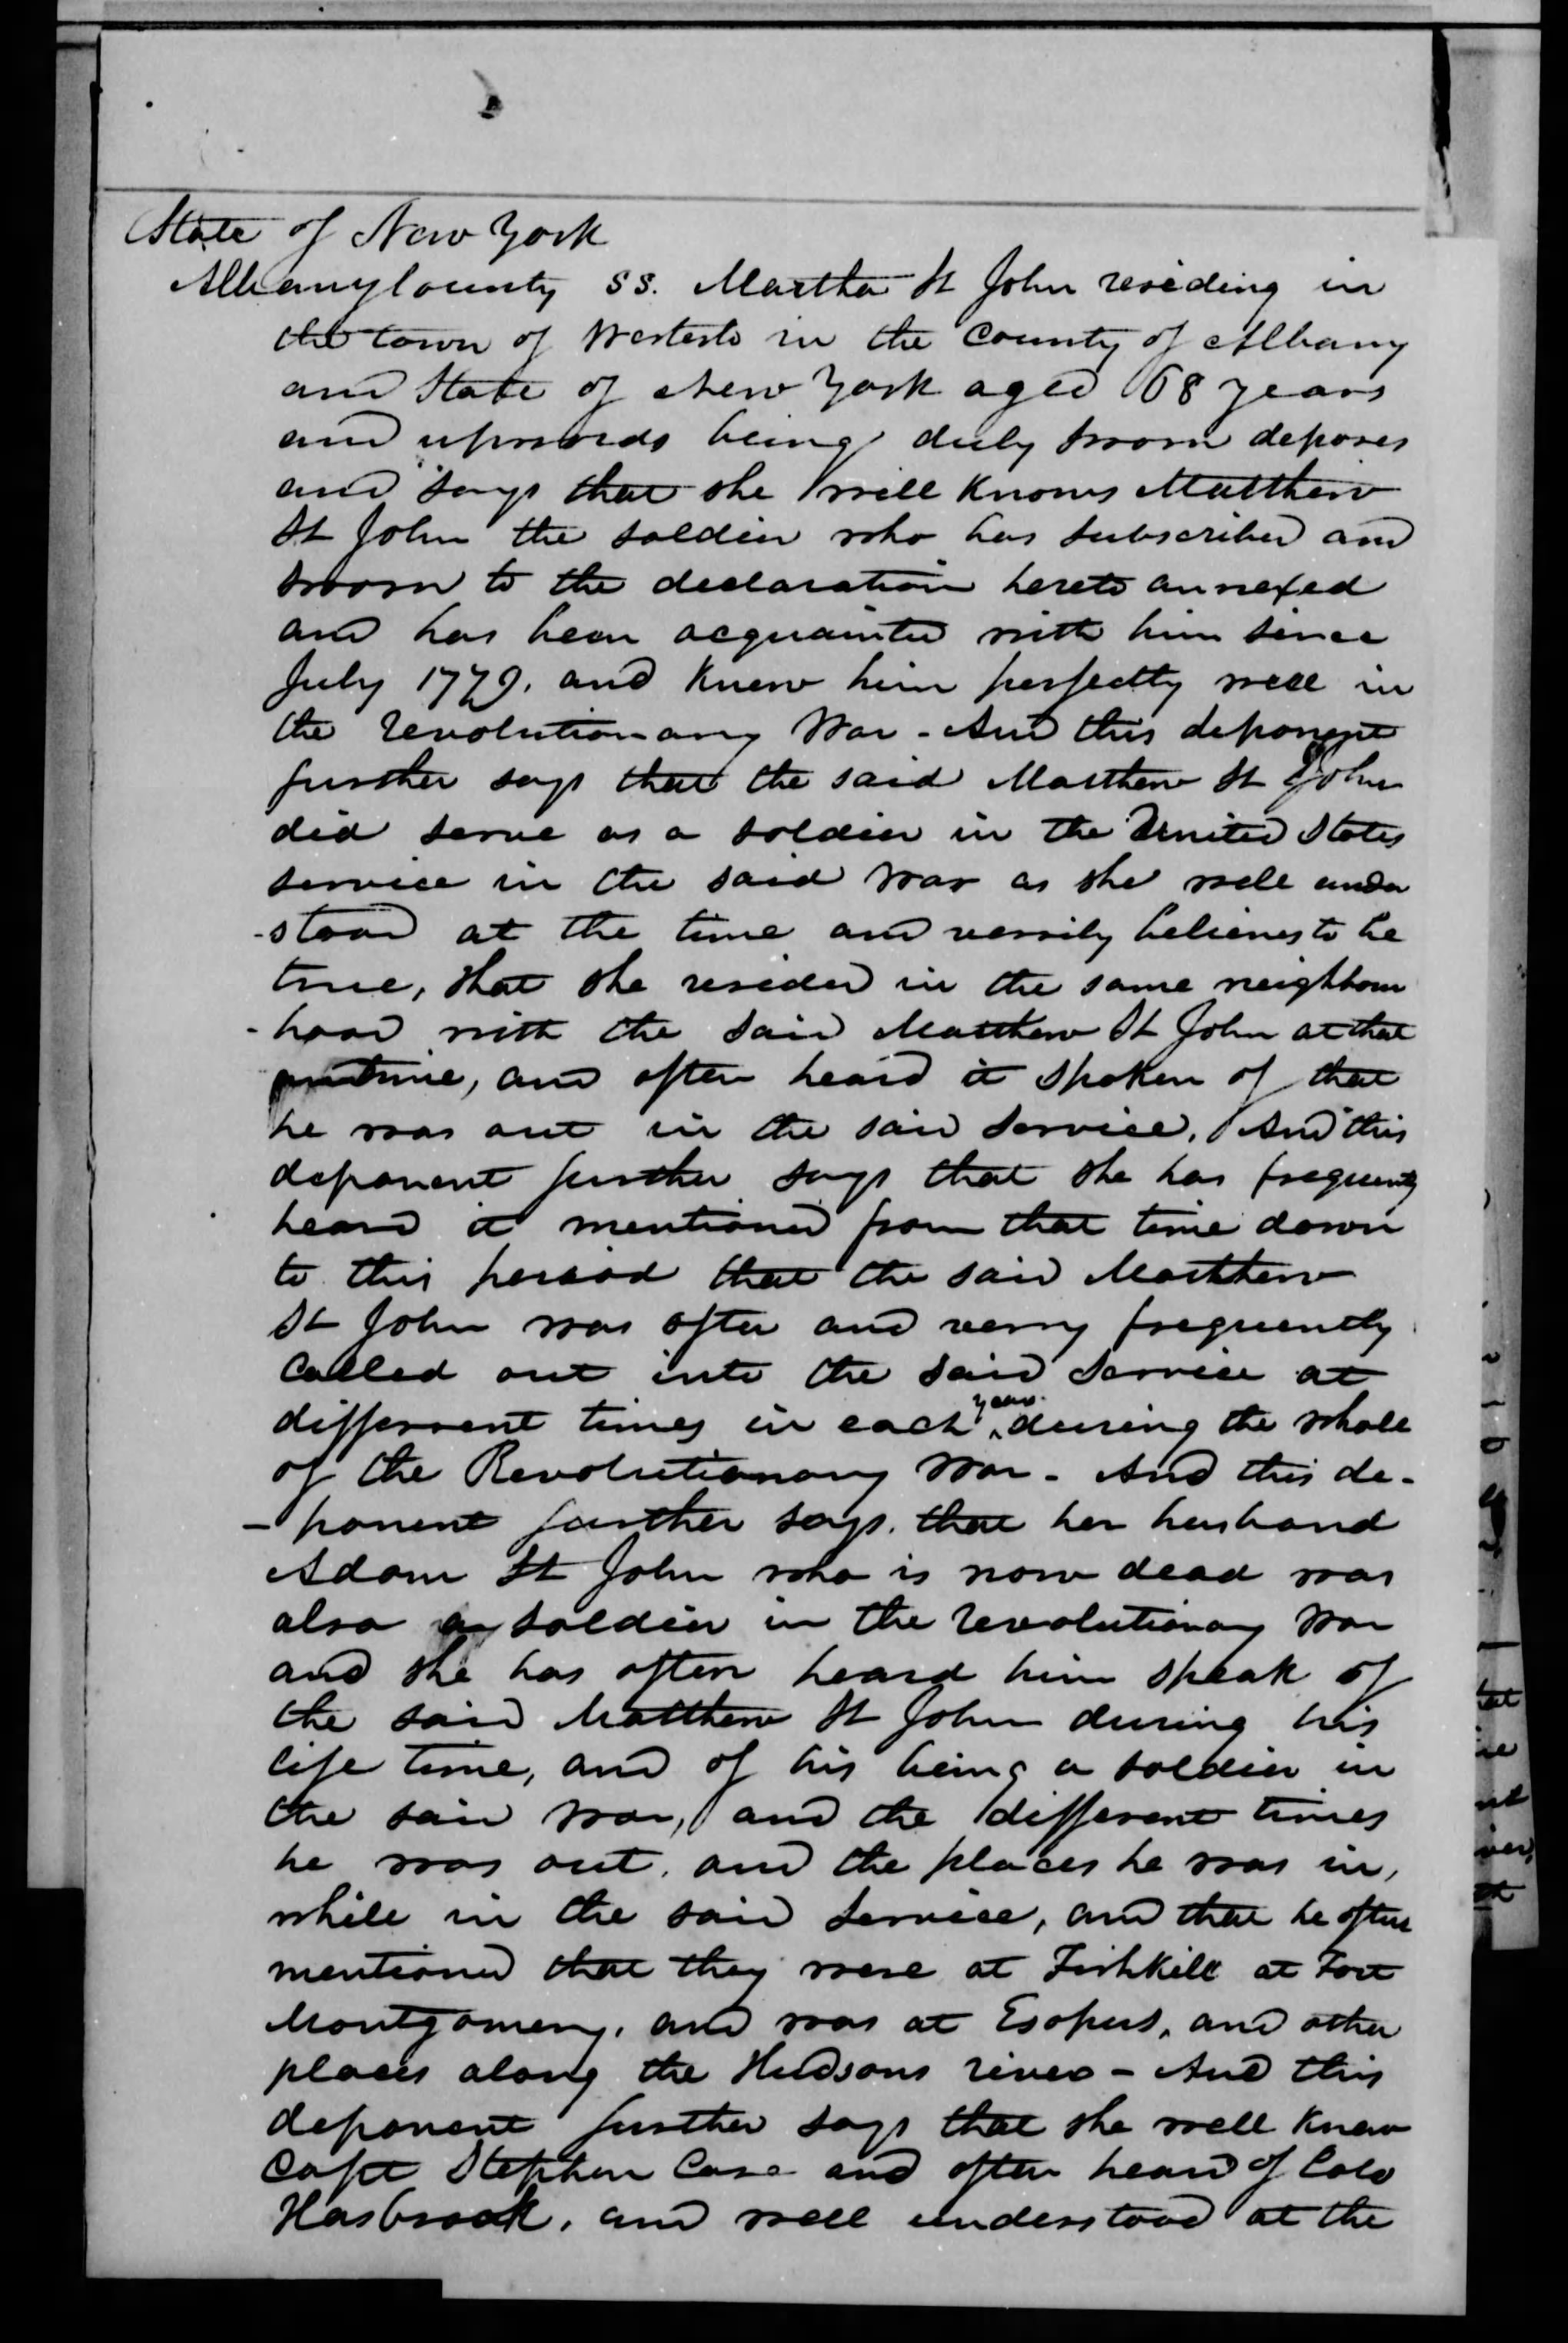 State of New York
Albany County SS. Martha St John residing in
the town of Westerlo in the County of Albany
and State of New York aged 68 years
and upwards being duly sworn deposes
and says that she well knows Matthew
St John the soldier who has subscribed and
sworn to the declaration hereto annexed
and has been acquainted with him since
July 1779, and knew him perfectly well in
the revolutionary War - And this deponent
further says that the said Matthew St John
did serve as a soldier in the United States
service in the said war as she well under
-stood at the time and verrily believes to be
true, that she resided in the same neighbour
-hood with the said Matthew St John at that
time, and often heard it spoken of that
he was out in the said service. And this
deponent further says that she has frequently
heard it mentioned from that time down
to this period that the said Matthew
St John was often and verry frequently
called out into the said service at
different times in each year during the whole
of the Revolutionary War - And this de-
-ponent further says. that her husband
Adam St John who is now dead was
also a soldier in the revolutionary War
and she has often heard him speak of
the said Matthew St John during his
life time, and of his being a soldier in
the said War, and the different times
he was out, and the places he was in,
while in the said service, and that he often
mentioned that they were at Fishkill at Fort
Montgomery, and was at Esopus, and other
places along the Hudsons river - And this
deponent further says that she well knew
Capt Stephen Case and often heard of Colo
Hasbrook, and well understood at the